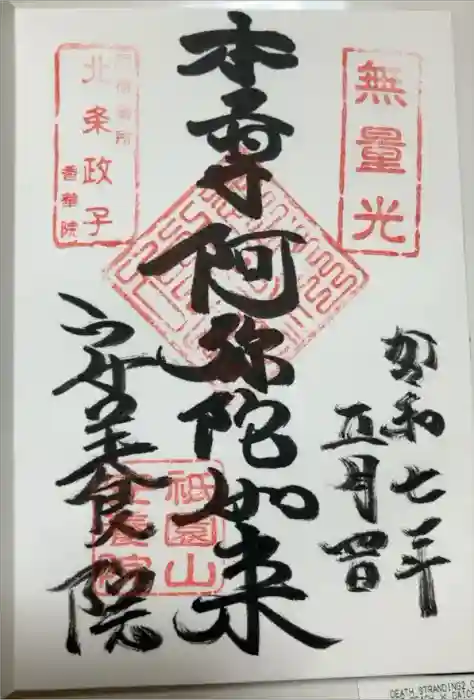 無量光
令和七年
五月四日
本尊阿弥陀如来
安養院
北条政子
香華院
祇園山
安養院
DEATH STRANDING2